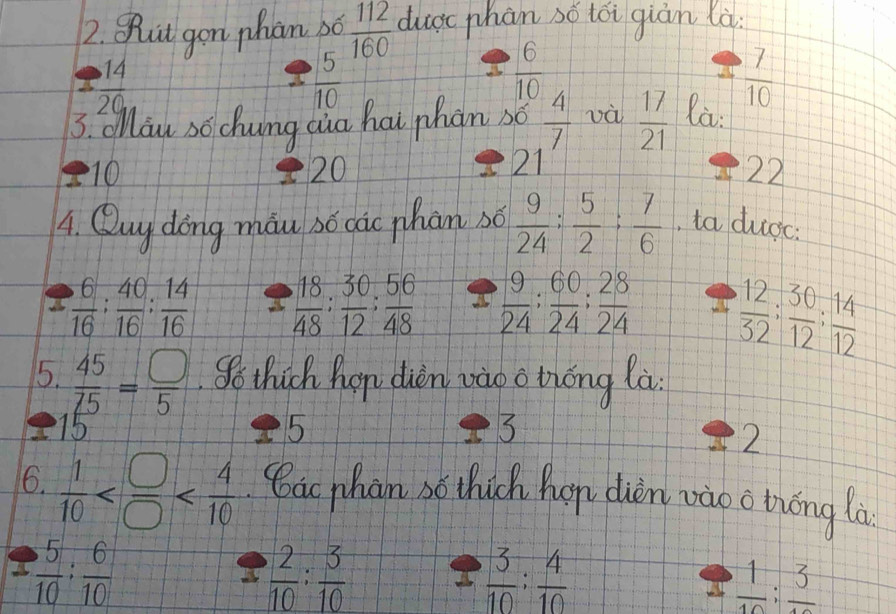 2. Rút gọn phân số 112/160 được phân số tối giản là:
14/20 5/10 6/10 7/10
3. Mẫu số chung của hai phân số 4/7 và 17/21 là:
10 20 21 22
4. Quy đồng mẫu số các phân số 9/24; 5/2; 7/6, ta được:
6/16; 40/16; 14/16 18/48; 30/12; 56/48 9/24; 60/24; 28/24 12/32; 30/12; 14/12
5. 45/75 = □/5. Số thích hợp điền vào ô trống là:
15 5 3 2
6. 1/10 < □/□ < 4/10. Các phân số thích hợp điền vào ô trống là:
5/10; 6/10 2/10; 3/10 3/10; 4/10 1/10; 3/